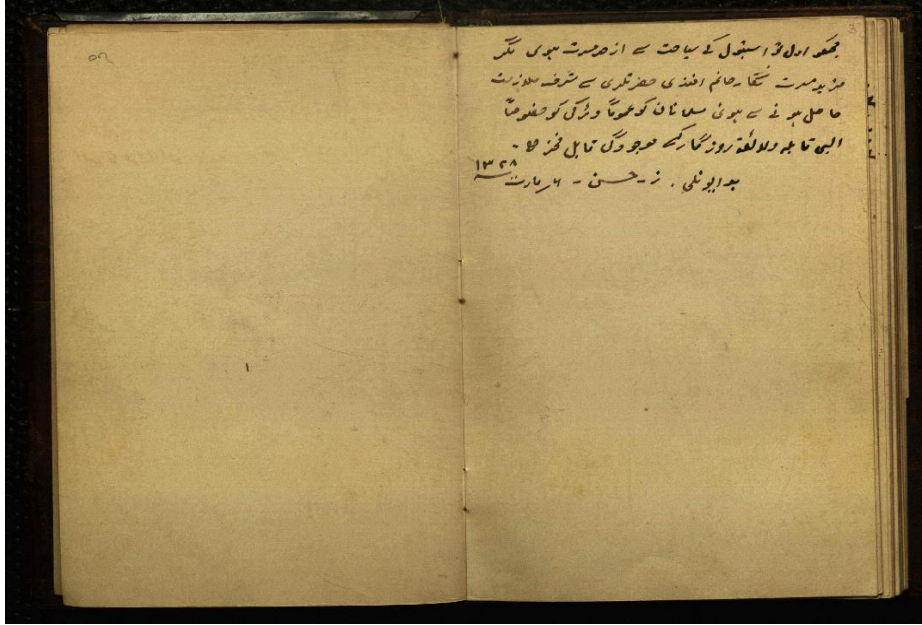 مجھکو اول تو استنبول کے سیاحت سے از حد مسرت ہوی مگر
مزید مسرت نگار خانم افندی حضرتلری سے شرف ملازمت
حاصل ہونے سے ہوئی مسلمانان کو عموماً و ترکی کو خصوصاً
ایسی قابلہ و لائقہ روزگار کے موجودگی قابل فخر ہے -
بدایونلی . ز - حسن - مارت ۱۳۲۸
3